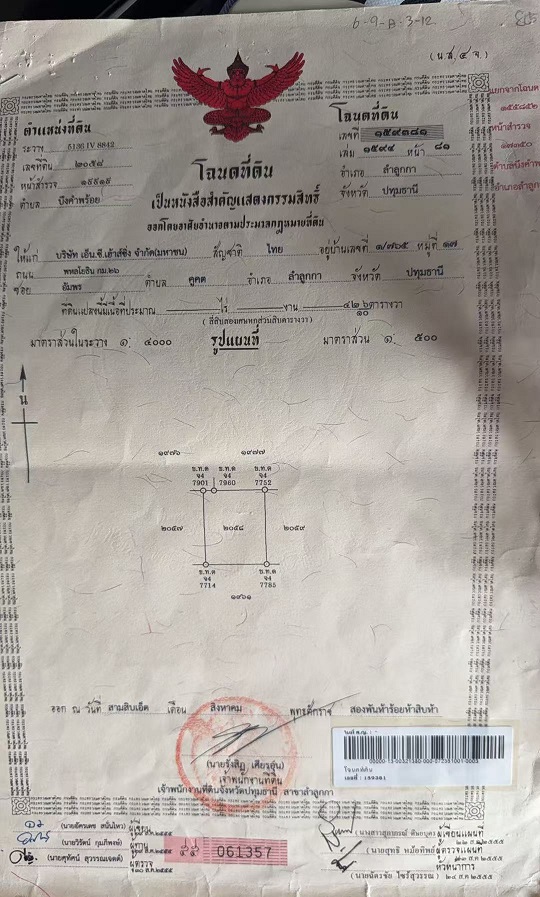 6-9-A-3-12
(น.ส.๔ จ.)
ตำแหน่งที่ดิน
ระวาง 5136 IV 8842
เลขที่ดิน ๒๐๕๘
หน้าสำรวจ
ตำบล บึงคำพร้อย
โฉนดที่ดิน
เลขที่ ๑๕๙๓๘๑
เล่ม ๑๕๙๔ หน้า ๘๑
อำเภอ ลำลูกกา
จังหวัด ปทุมธานี
แยกจากโฉนด
๑๕๕๘๕๒
หน้าสำรวจ
ตำบลบึงคำพร้อย
อำเภอลำลูกกา
โฉนดที่ดิน
เป็นหนังสือสำคัญแสดงกรรมสิทธิ์
ออกโดยอาศัยอำนาจตามประมวลกฎหมายที่ดิน
ให้แก่ บริษัท เอ็น.ซี.เฮ้าส์ซิ่ง จำกัด(มหาชน) สัญชาติ ไทย อยู่บ้านเลขที่ ๑/๗๖๕ หมู่ที่ ๑๗
ถนน พหลโยธิน กม.๒๖
ซอย อัมพร ตำบล คูคต อำเภอ ลำลูกกา จังหวัด ปทุมธานี
ที่ดินแปลงนี้มีเนื้อที่ประมาณ ไร่ งาน ๔๒ ๖/๑๐ ตารางวา
(สี่สิบสองเศษหกส่วนสิบตารางวา)
มาตราส่วนในระวาง ๑: ๔๐๐๐ รูปแผนที่ มาตราส่วน ๑: ๕๐๐
น
๑๙๗๖ ๑๙๗๗
ข.ท.ด ข.ท.ด ข.ท.ด
จ4 จ4 จ4
7901 7960 7752
๒๐๕๗ ๒๐๕๘ ๒๐๕๙
ข.ท.ด ข.ท.ด
จ4 จ4
7714 7785
๑๙๖๑
ออก ณ วันที่ สามสิบเอ็ด เดือน สิงหาคม พุทธศักราช สองพันห้าร้อยห้าสิบห้า
(นายรังสิฎ เศียรอุ่น)
เจ้าพนักงานที่ดิน
เจ้าพนักงานที่ดินจังหวัดปทุมธานี สาขาลำลูกกา
โฉนดที่ดิน
เลขที่ : 159381
(นายฉัตรเดช สนั่นไหว) ผู้เขียน
(นายวิรัตน์ กุมภีพงษ์) ผู้ทาน
(นายสุทัศน์ สุวรรณเจตต์) ผู้ตรวจ
๙๙ 061357
ผู้เขียนแผนที่
ผู้ตรวจแผนที่
หัวหน้าการ
(นายฉัตรชัย ไซร้สุวรรณ) ๒๔ ส.ค.๒๕๕๕